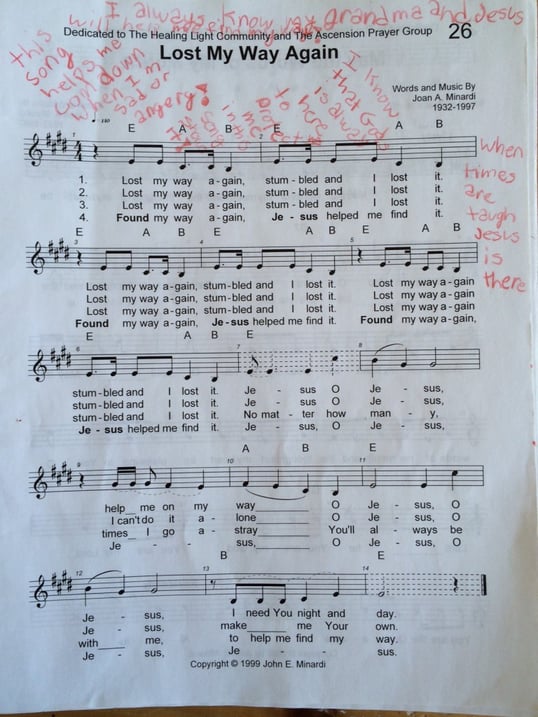 I always know my Grandma and Jesus
will help me find my way
this
song
helps me
com down
when I'm
sad or
angery!
I know
that God
is always
here
to
protect
me
in this
song
When
times
are
taugh
Jesus
is
there
Dedicated to The Healing Light Community and The Ascension Prayer Group 26
Lost My Way Again
Words and Music By
Joan A. Minardi
1932-1997
E A B E A B
1. Lost my way a-gain, stum-bled and I lost it.
2. Lost my way a-gain, stum-bled and I lost it.
3. Lost my way a-gain, stum-bled and I lost it.
4. Found my way a-gain, Je - sus helped me find it.
E A B E A B E A B
3 4 5
Lost my way a-gain, stum-bled and I lost it. Lost my way a-gain
Lost my way a-gain, stum-bled and I lost it. Lost my way a-gain
Lost my way a-gain, stum-bled and I lost it. Lost my way a-gain
Found my way a-gain, Je-sus helped me find it. Found my way a-gain,
E A B E
6 7 8
stum-bled and I lost it. Je - sus O Je - sus,
stum-bled and I lost it. Je - sus O Je - sus,
stum-bled and I lost it. No mat - ter how man - y,
Je - sus helped me find it. Je - sus, O Je - sus,
A B E
9 10 11
help__ me on my way______ O Je - sus, O
I can't do it a - lone______ O Je - sus, O
times__ I go a - stray______ You'll al - ways be
Je - sus,______ O Je - sus, O
B E
12 13 14
Je - sus, I need You night and day.
Je - sus, make____ me Your own.
with____ me, to help me find my way.
Je - sus, Je - sus.
Copyright © 1999 John E. Minardi